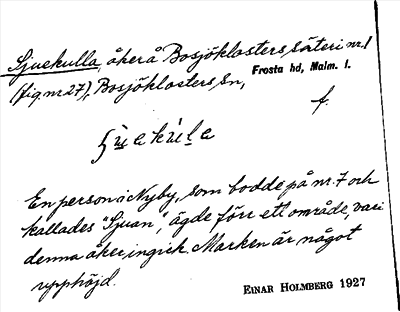 Sjuekulla, åker å Bosjöklosters säteri nr 1
(fig. nr 27), Bosjöklosters sn,
Frosta hd, Malm. l.
f.
En person i Nyby, som bodde på nr. 7 och
kallades "Sjuan," ägde förr ett område, vari
denna åker ingick. Marken är något
upphöjd.
EINAR HOLMBERG 1927